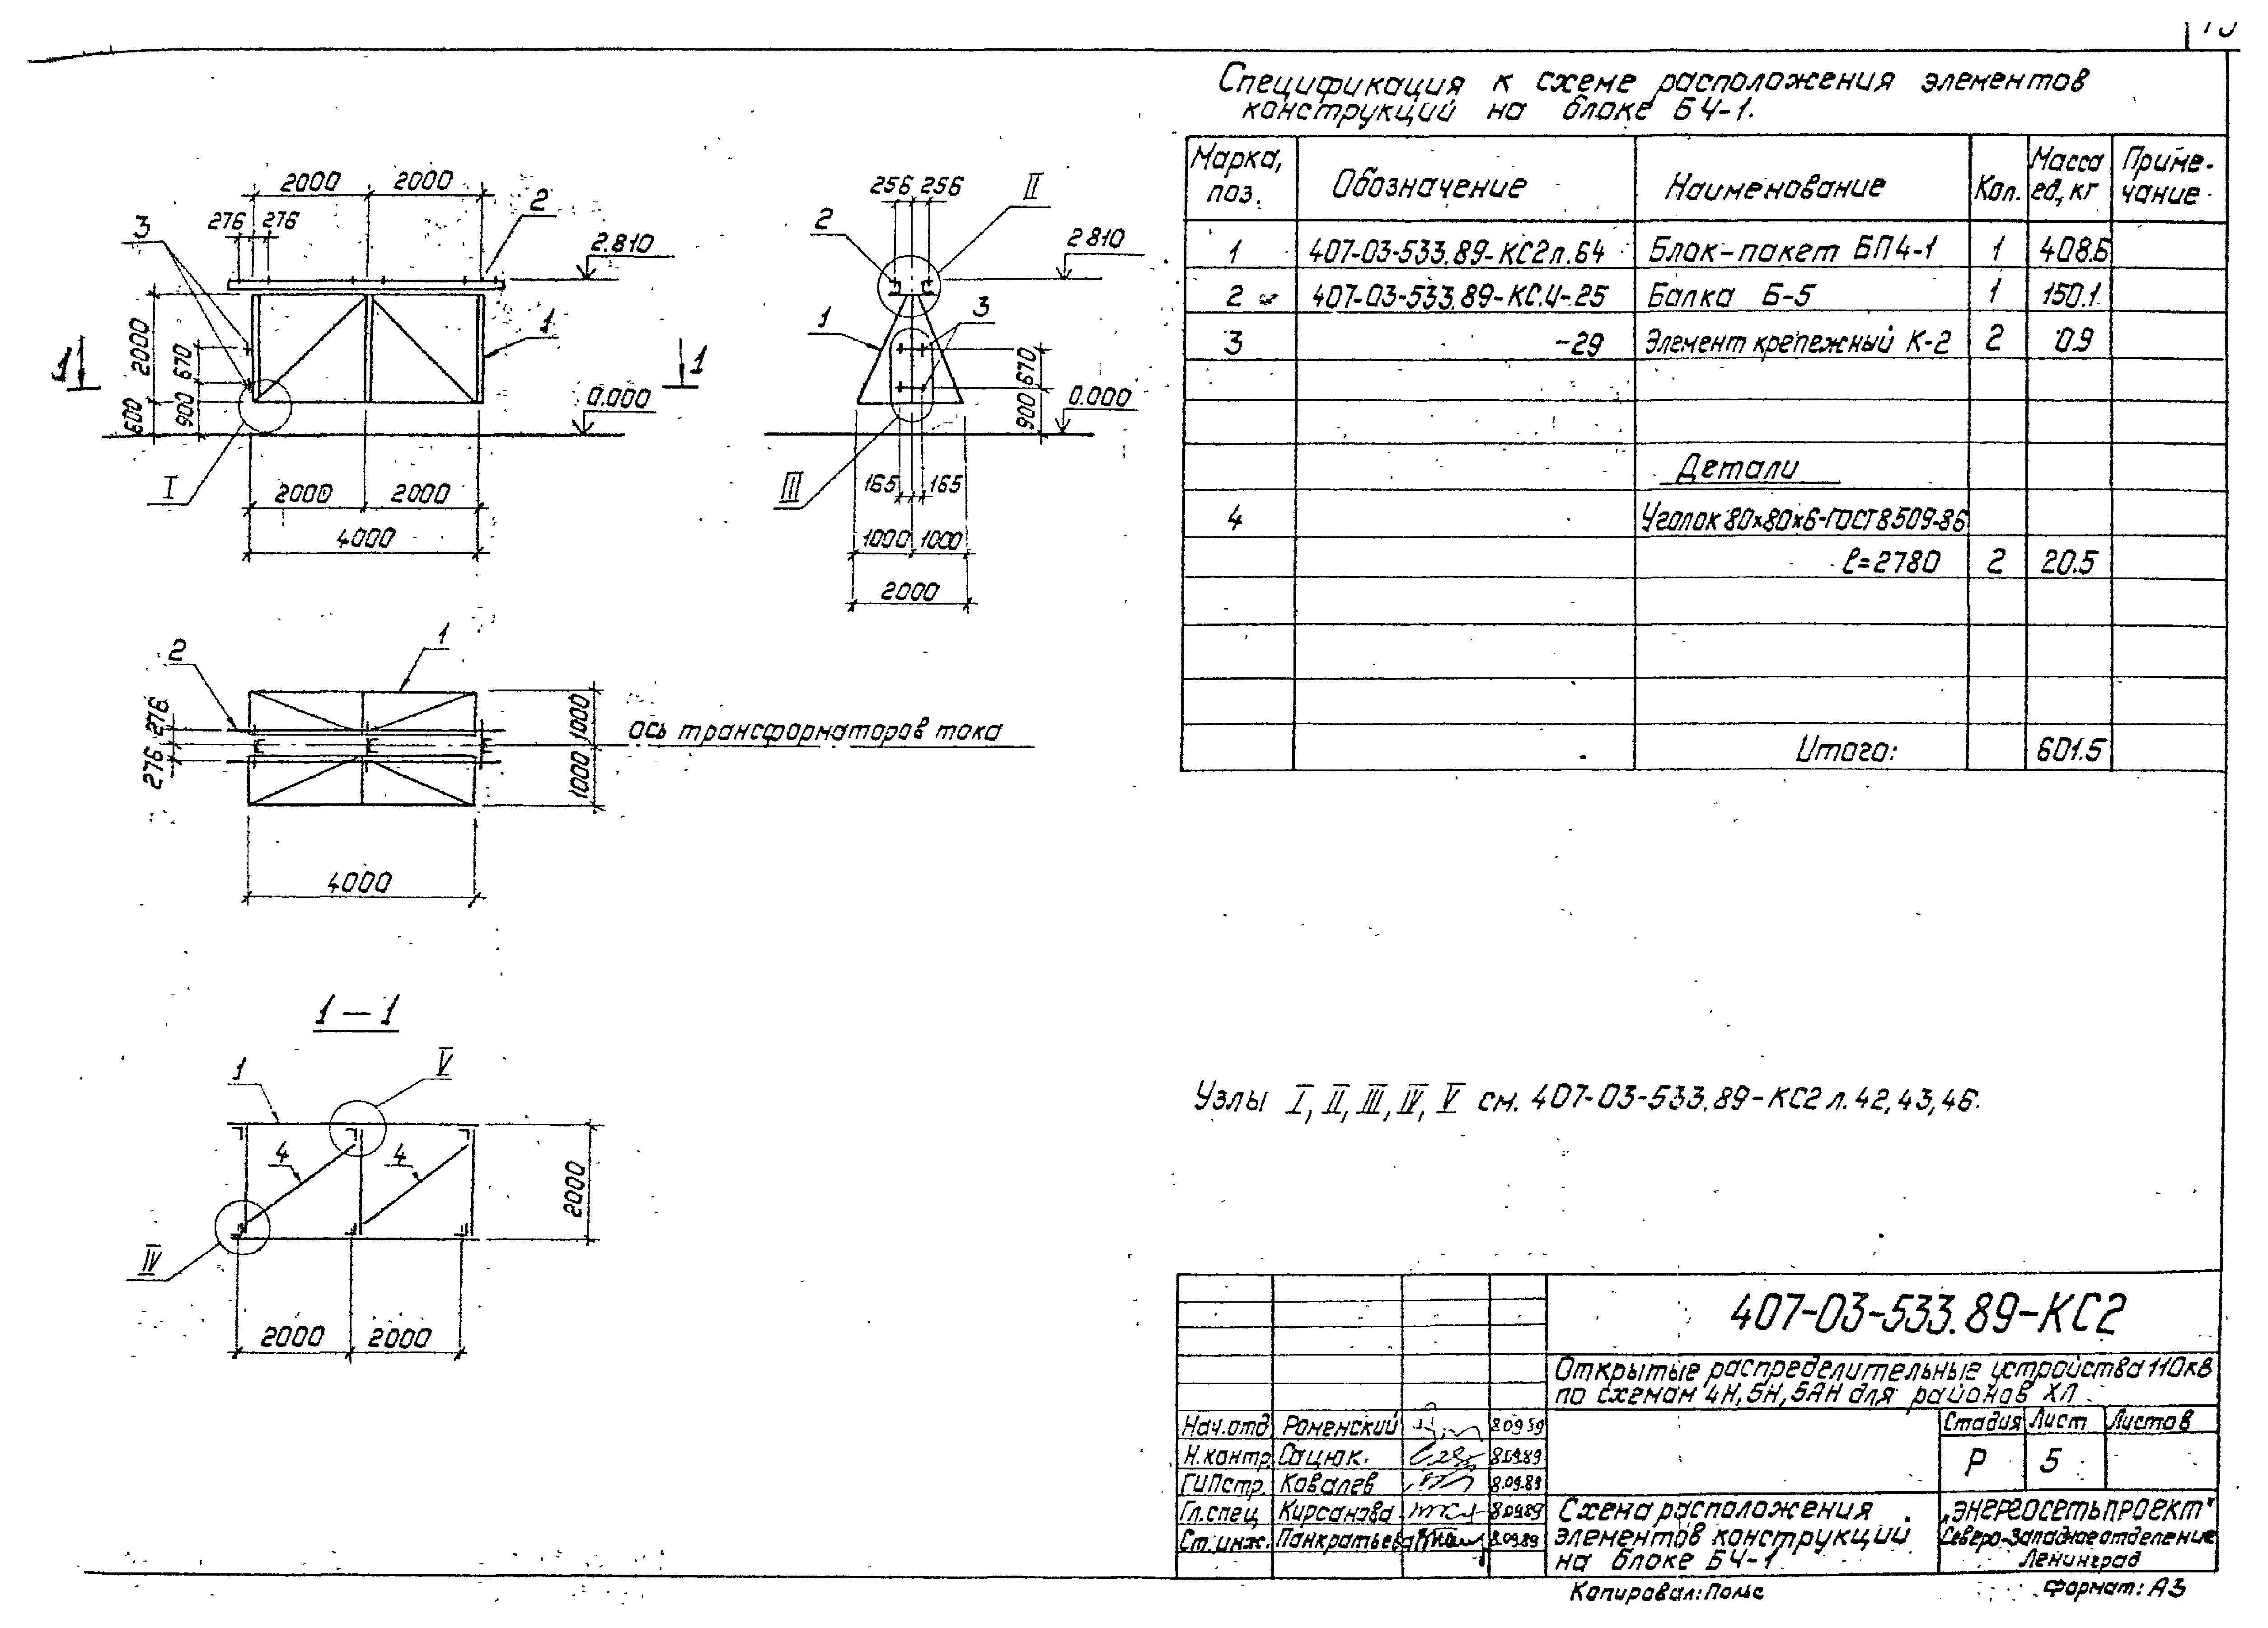 Спецификация к схеме расположения элементов
конструкций на блоке БЧ-1.
Марка, поз. Обозначение Наименование Кол. Масса ед, кг Приме-чание
1 407-03-533.89-КС2л.64 Блок-пакет БП4-1 1 408.6
2 407-03-533.89-КС.И-25 Балка Б-5 1 150.1
3 -29 Элемент крепежный К-2 2 0.9
Детали
4 Уголок 80х80х6-ГОСТ8509-86
ℓ=2780 2 20.5
Итого: 601.5
2000 2000
276 276
2
3
2.810
2000
670
600
900
1 1
1
0.000
I
2000 2000
4000
256 256
II
2
2 810
1
3
670
900
0.000
III
165 165
1000 1000
2000
2
1
276
276
1000
1000
ось трансформаторов тока
4000
1-1
1
V
4 4
2000
IV
2000 2000
Узлы I, II, III, IV, V см. 407-03-533.89-КС2 л.42,43,46.
407-03-533.89-КС2
Открытые распределительные устройства 110кв
по схемам 4Н, 5Н, 5АН для районов ХЛ
Нач.отд Роменский 8.09.59
Н.контр. Сацюк. 8.09.89
ГИПстр. Ковалев 8.09.89
Гл.спец Кирсанова 8.09.89
Ст.инж. Панкратьева 8.09.89
Стадия Лист Листов
Р 5
Схема расположения
элементов конструкций
на блоке БЧ-1
„Энергосетьпроект"
Северо-Западное отделение
Ленинград
Копировал: Польс
Формат: А3